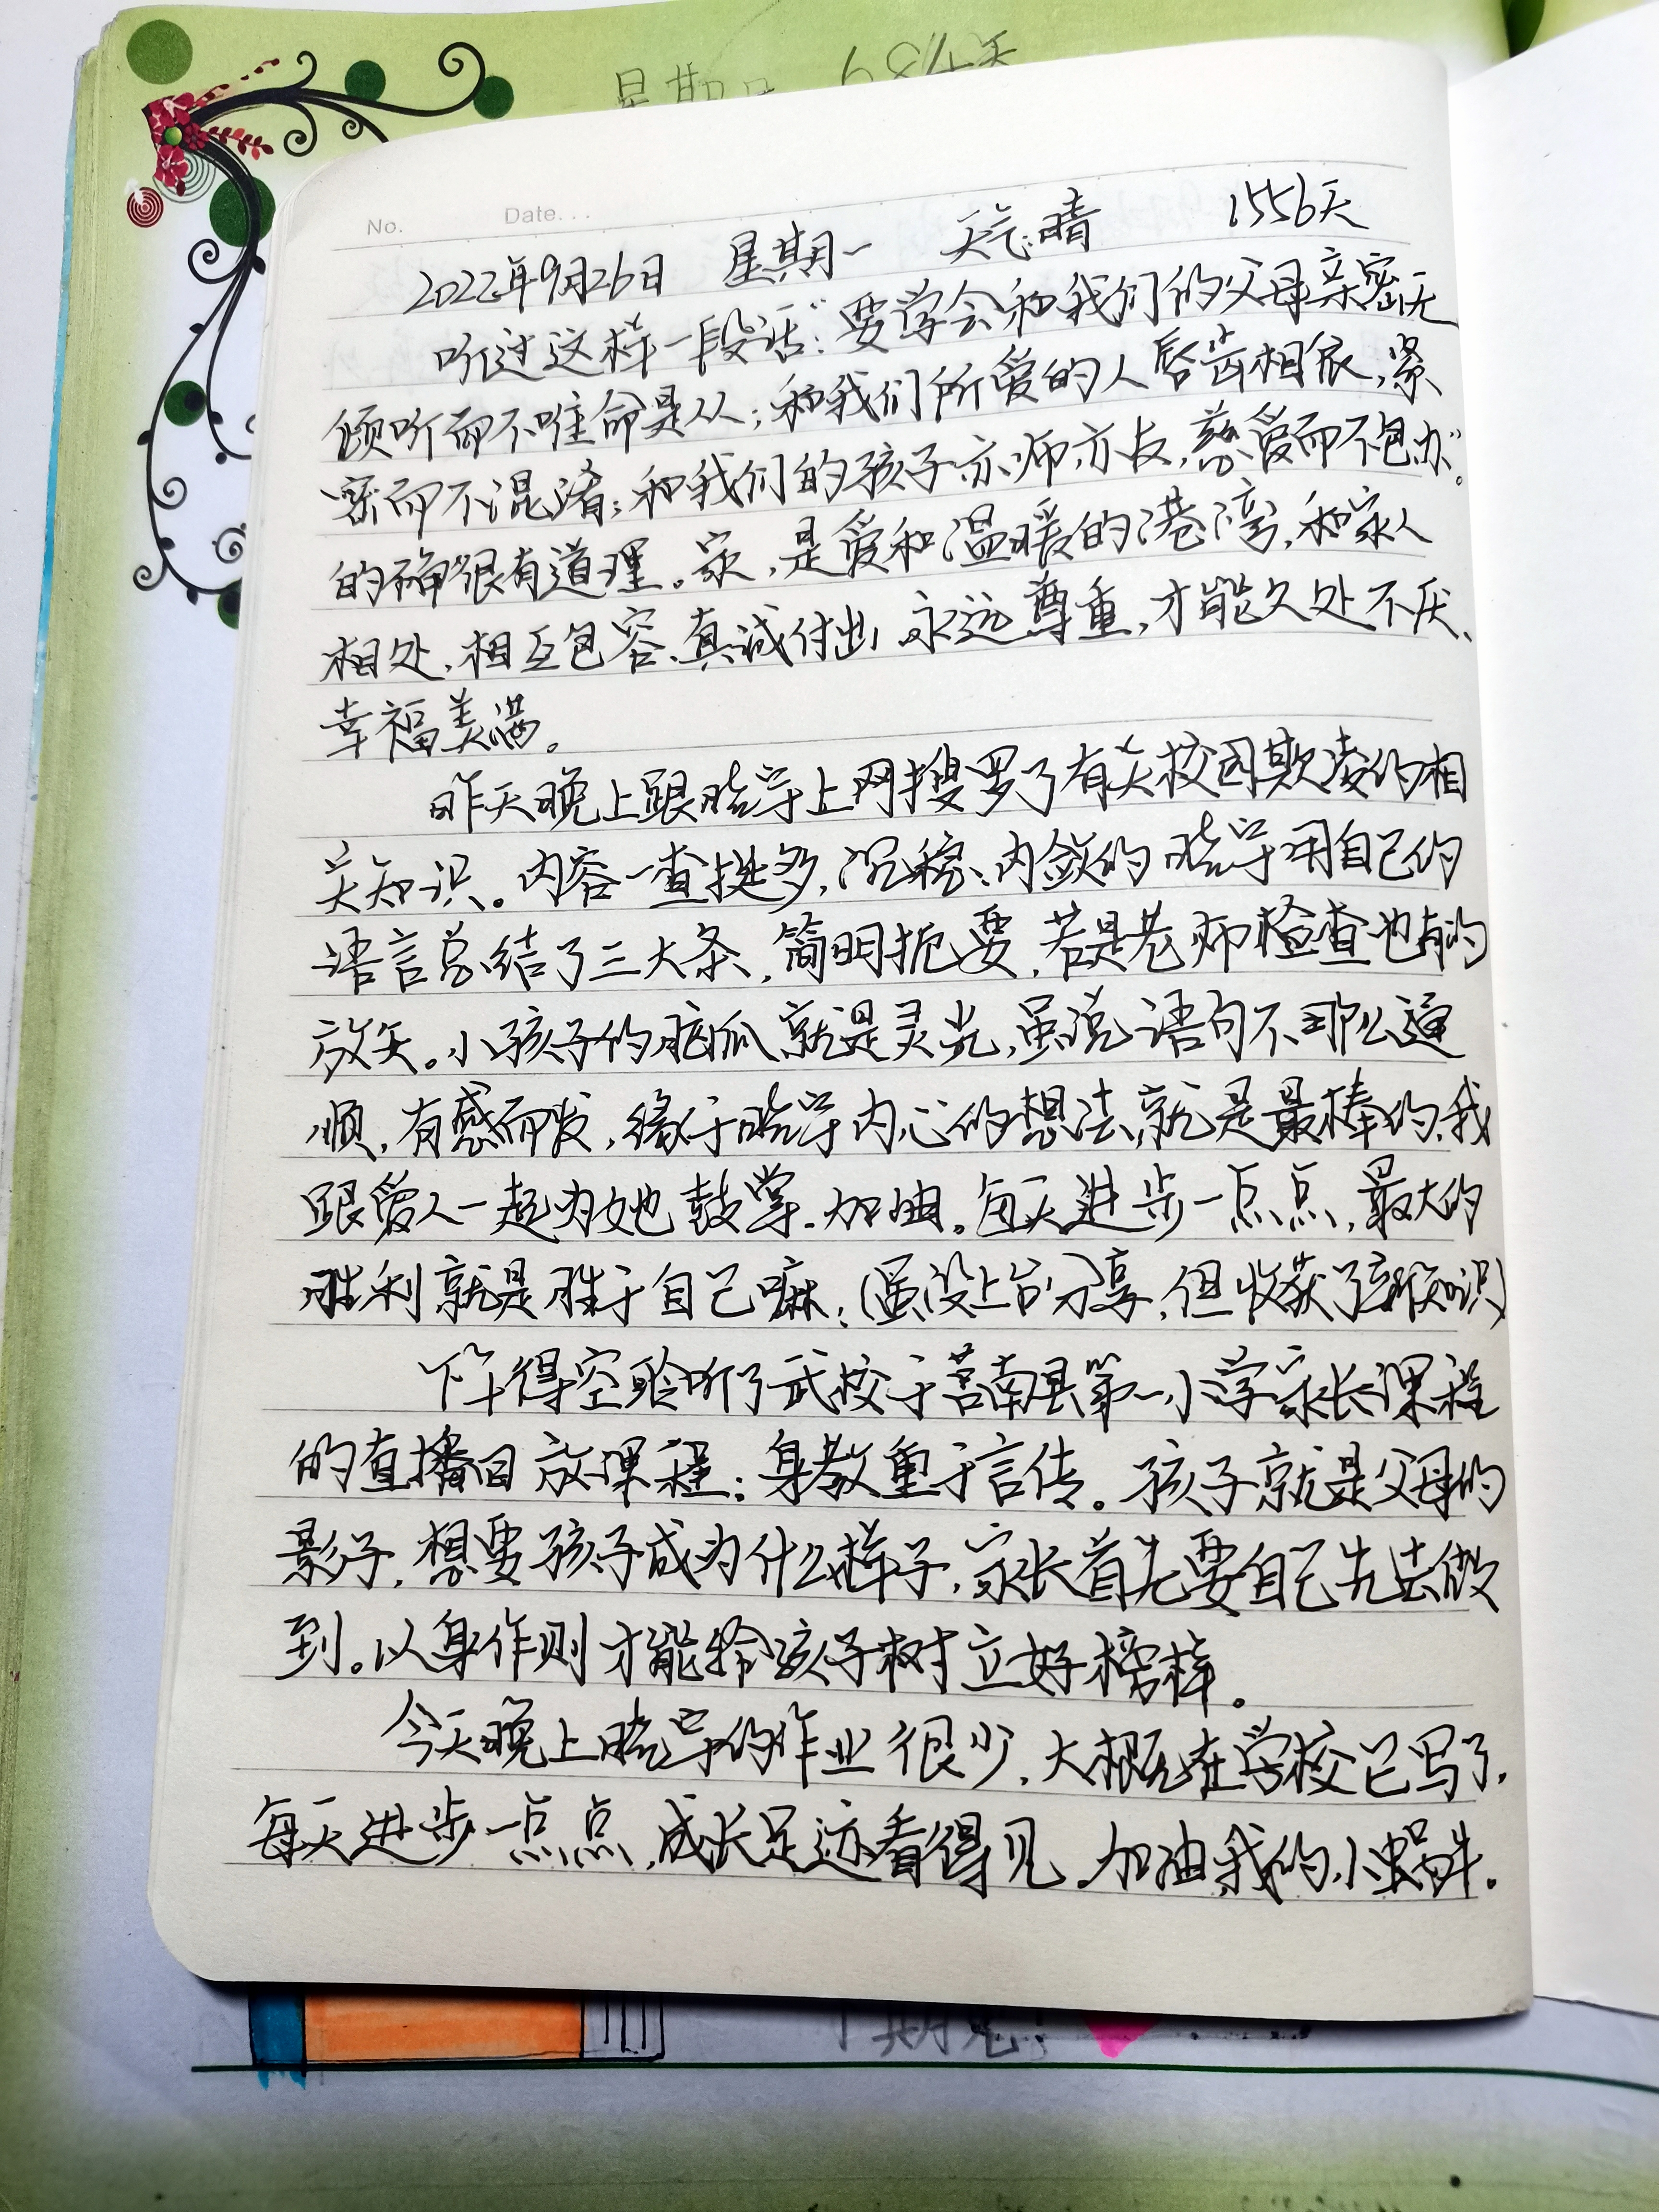 星期 684天
No.
Date...
2022年9月26日 星期一 天气:晴 1556天
听过这样一段话:“要学会和我们的父母亲密无
倾听而不唯命是从;和我们所爱的人唇齿相依,紧
密而不混淆;和我们的孩子亦师亦友,慈爱而不包办”。
的确很有道理。家,是爱和温暖的港湾,和家人
相处,相互包容、真诚付出 永远尊重,才能久处不厌、
幸福美满。
昨天晚上跟晓宇上网搜罗了有关校园欺凌的相
关知识。内容一查挺多,沉稳、内敛的晓宇用自己的
语言总结了三大条,简明扼要,若是老师检查也有的
放矢。小孩子的脑瓜就是灵光,虽说语句不那么通
顺,有感而发,缘于晓宇内心的想法,就是最棒的,我
跟爱人一起为她鼓掌.加油。每天进步一点点,最大的
胜利就是胜于自己嘛;(虽没上台分享,但收获了新知识)
下午得空聆听了武校于莒南县第一小学家长课程
的直播回放课程:身教重于言传。孩子就是父母的
影子,想要孩子成为什么样子,家长首先要自己先去做
到。以身作则才能给孩子树立好榜样。
今天晚上晓宇的作业很少,大概在学校已写了,
每天进步一点点,成长足迹看得见.加油,我的小蜗牛.